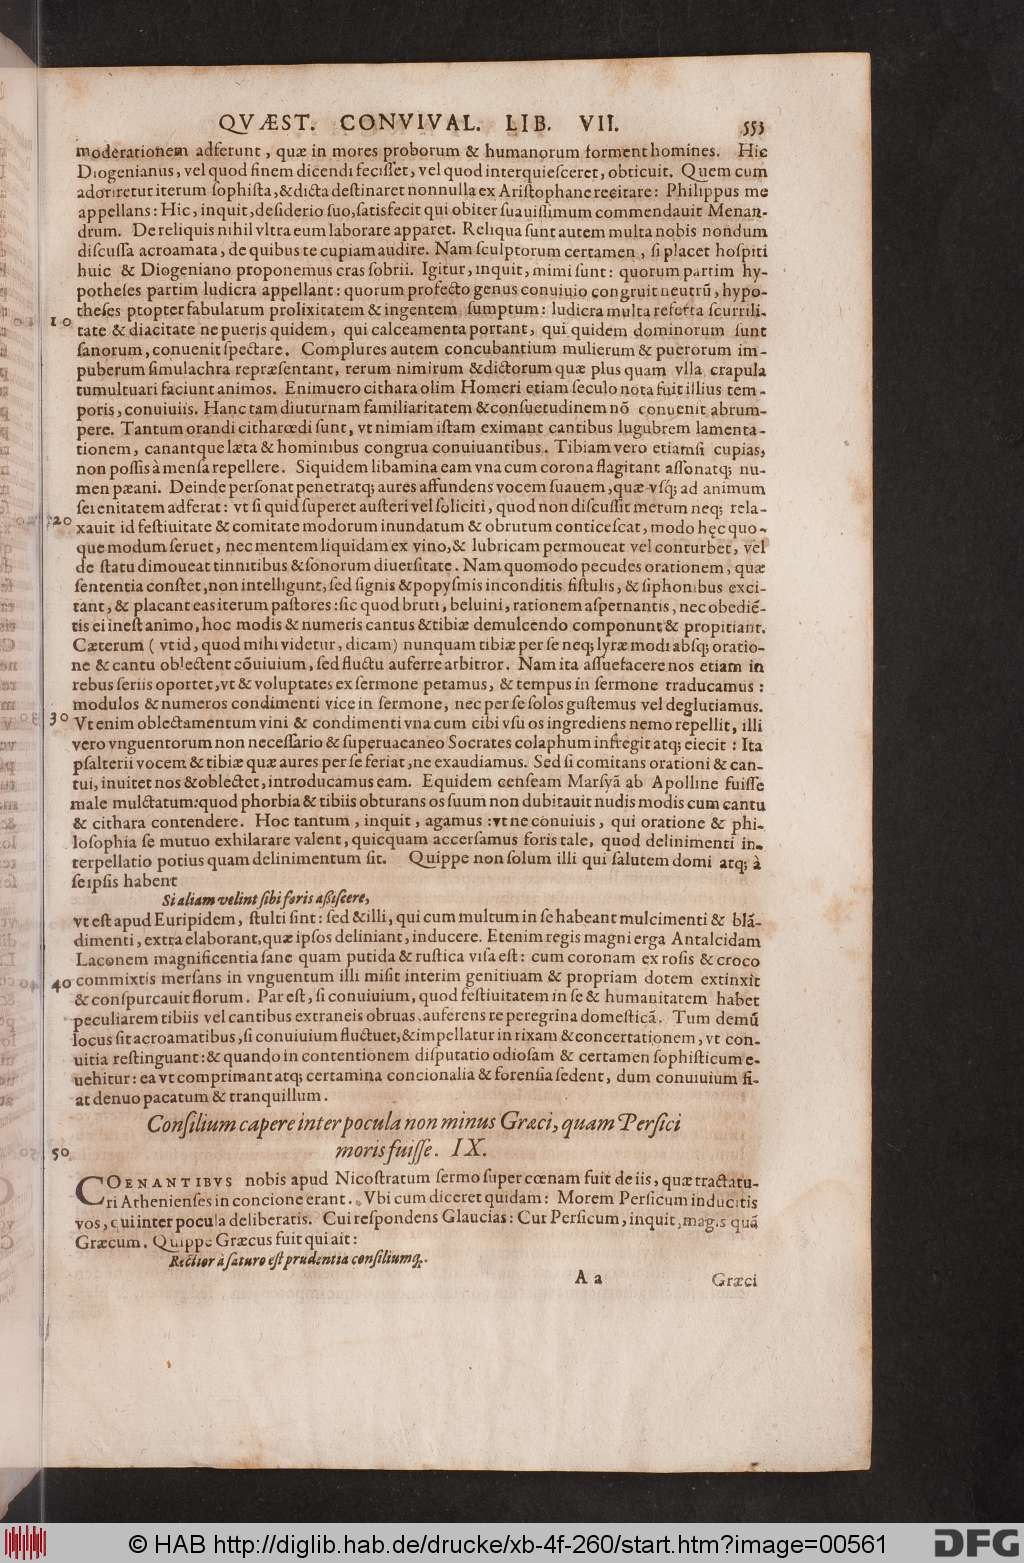 QVÆST. CONVIVAL. LIB. VII. 553
moderationem adferunt, quæ in mores proborum & humanorum forment homines. Hic
Diogenianus, vel quod finem dicendi fecisset, vel quod interquiesceret, obticuit. Quem cum
adoriretur iterum sophista, & dicta destinaret nonnulla ex Aristophane recitare: Philippus me
appellans: Hic, inquit, desiderio suo, satisfecit qui obiter suauissimum commendauit Menan-
drum. De reliquis nihil vltra eum laborare apparet. Reliqua sunt autem multa nobis nondum
discussa acroamata, de quibus te cupiam audire. Nam sculptorum certamen, si placet hospiti
huic & Diogeniano proponemus cras sobrii. Igitur, inquit, mimi sunt: quorum partim hy-
potheses partim ludicra appellant: quorum profecto genus conuiuio congruit neutrũ, hypo-
theses propter fabularum prolixitatem & ingentem sumptum: ludicra multa referta scurrili-
10 tate & diacitate ne pueris quidem, qui calceamenta portant, qui quidem dominorum sunt
sanorum, conuenit spectare. Complures autem concubantium mulierum & puerorum im-
puberum simulachra repræsentant, rerum nimirum & dictorum quæ plus quam vlla crapula
tumultuari faciunt animos. Enimuero cithara olim Homeri etiam seculo nota fuit illius tem-
poris, conuiuiis. Hanc tam diuturnam familiaritatem & consuetudinem nõ conuenit abrum-
pere. Tantum orandi citharœdi sunt, vt nimiam istam eximant cantibus lugubrem lamenta-
tionem, canantque læta & hominibus congrua conuiuantibus. Tibiam vero etiamsi cupias,
non possis à mensa repellere. Siquidem libamina eam vna cum corona flagitant assonatq; nu-
men pæani. Deinde personat penetratq; aures affundens vocem suauem, quæ vsq; ad animum
serenitatem adferat: vt si quid superet austeri vel soliciti, quod non discussit merum neq; rela-
20 xauit id festiuitate & comitate modorum inundatum & obrutum conticescat, modo hęc quo-
que modum seruet, nec mentem liquidam ex vino, & lubricam permoueat vel conturbet, vel
de statu dimoueat tinnitibus & sonorum diuersitate. Nam quomodo pecudes orationem, quæ
sententia constet, non intelligunt, sed signis & popysmis inconditis fistulis, & siphonibus exci-
tant, & placant eas iterum pastores: sic quod bruti, beluini, rationem aspernantis, nec obediẽ-
tis ei inest animo, hoc modis & numeris cantus & tibiæ demulcendo componunt & propitiant.
Cæterum ( vt id, quod mihi videtur, dicam) nunquam tibiæ per se neq; lyræ modi absq; oratio-
ne & cantu oblectent cõuiuium, sed fluctu auferre arbitror. Nam ita assuefacere nos etiam in
rebus seriis oportet, vt & voluptates ex sermone petamus, & tempus in sermone traducamus:
modulos & numeros condimenti vice in sermone, nec per se solos gustemus vel deglutiamus.
30 Vt enim oblectamentum vini & condimenti vna cum cibi vsu os ingrediens nemo repellit, illi
vero vnguentorum non necessario & superuacaneo Socrates colaphum infregit atq; eiecit: Ita
psalterii vocem & tibiæ quæ aures per se feriat, ne exaudiamus. Sed si comitans orationi & can-
tui, inuitet nos & oblectet, introducamus eam. Equidem censeam Marsyã ab Apolline fuisse
male mulctatum: quod phorbia & tibiis obturans os suum non dubitauit nudis modis cum cantu
& cithara contendere. Hoc tantum, inquit, agamus: vt ne conuiuis, qui oratione & phi-
losophia se mutuo exhilarare valent, quicquam accersamus foris tale, quod delinimenti in-
terpellatio potius quam delinimentum sit. Quippe non solum illi qui salutem domi atq; à
seipsis habent
Si aliam velint sibi foris asciscere,
vt est apud Euripidem, stulti sint: sed & illi, qui cum multum in se habeant mulcimenti & blã-
dimenti, extra elaborant, quæ ipsos deliniant, inducere. Etenim regis magni erga Antalcidam
Laconem magnificentia sane quam putida & rustica visa est: cum coronam ex rosis & croco
40 commixtis mersans in vnguentum illi misit interim genitiuam & propriam dotem extinxit
& conspurcauit florum. Par est, si conuiuium, quod festiuitatem in se & humanitatem habet
peculiarem tibiis vel cantibus extraneis obruas auferens re peregrina domesticã. Tum demũ
locus sit acroamatibus, si conuiuium fluctuet, & impellatur in rixam & concertationem, vt con-
uitia restinguant: & quando in contentionem disputatio odiosam & certamen sophisticum e-
uehitur: ea vt comprimant atq; certamina concionalia & forensia sedent, dum conuiuium fi-
at denuo pacatum & tranquillum.
Consilium capere inter pocula non minus Græci, quam Persici
50 moris fuisse. IX.
COENANTIBVS nobis apud Nicostratum sermo super cœnam fuit de iis, quæ tractatu-
ri Athenienses in concione erant. Vbi cum diceret quidam: Morem Persicum inducitis
vos, qui inter pocula deliberatis. Cui respondens Glaucias: Cur Persicum, inquit, magis quã
Græcum. Quippe Græcus fuit qui ait:
Rectior à saturo est prudentia consiliumq.
A a Græci
© HAB http://diglib.hab.de/drucke/xb-4f-260/start.htm?image=00561
DFG